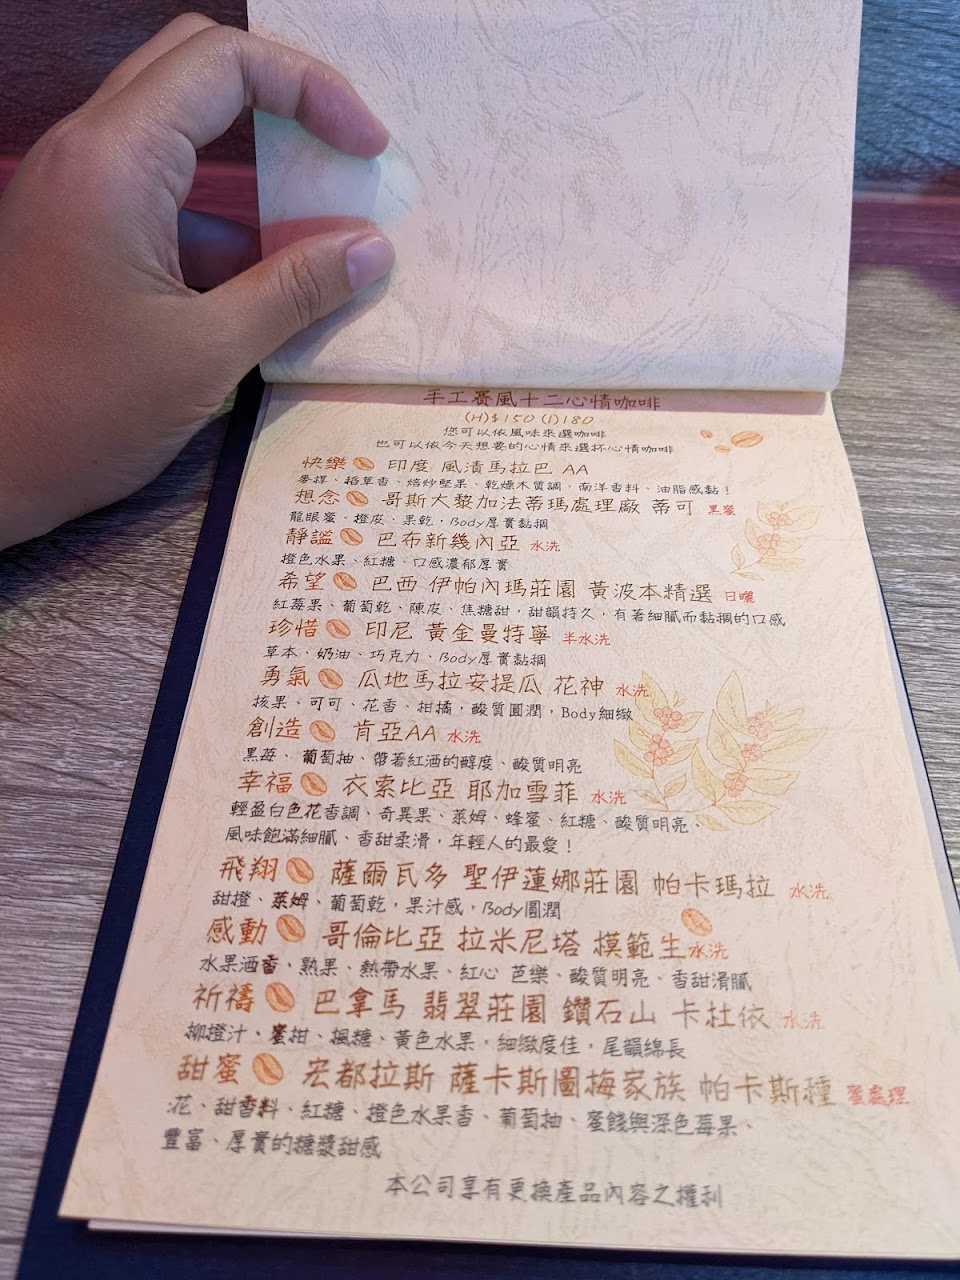 手工賽風十二心情咖啡
(H)$150 (I)180
您可以依風味來選咖啡
也可以依今天想要的心情來選杯心情咖啡
快樂 印度 風漬馬拉巴 AA
麥桿、稻草香、焙炒堅果、乾燥木質調、南洋香料、油脂感黏!
想念 哥斯大黎加法蒂瑪處理廠 蒂可 黑蜜
龍眼蜜、橙皮、果乾,Body厚實黏稠
靜謐 巴布新幾內亞 水洗
橙色水果、紅糖、口感濃郁厚實
希望 巴西 伊帕內瑪莊園 黃波本精選 日曬
紅莓果、葡萄乾、陳皮、焦糖甜,甜韻持久,有著細膩而黏稠的口感
珍惜 印尼 黃金曼特寧 半水洗
草本、奶油、巧克力、Body厚實黏稠
勇氣 瓜地馬拉安提瓜 花神 水洗
核果、可可、花香、柑橘,酸質圓潤,Body細緻
創造 肯亞AA 水洗
黑莓、葡萄柚、帶著紅酒的醇度、酸質明亮
幸福 衣索比亞 耶加雪菲 水洗
輕盈白色花香調、奇異果、萊姆、蜂蜜、紅糖、酸質明亮、
風味飽滿細膩、香甜柔滑,年輕人的最愛!
飛翔 薩爾瓦多 聖伊蓮娜莊園 帕卡瑪拉 水洗
甜橙、萊姆、葡萄乾,果汁感,Body圓潤
感動 哥倫比亞 拉米尼塔 模範生 水洗
水果酒香、熟果、熱帶水果、紅心 芭樂、酸質明亮、香甜滑膩
祈禱 巴拿馬 翡翠莊園 鑽石山 卡杜依 水洗
柳橙汁、蜜柑、楓糖、黃色水果,細緻度佳,尾韻綿長
甜蜜 宏都拉斯 薩卡斯圖梅家族 帕卡斯種 蜜處理
花、甜香料、紅糖、橙色水果香、葡萄柚、蜜餞與深色莓果、
豐富、厚實的糖漿甜感
本公司享有更換產品內容之權利